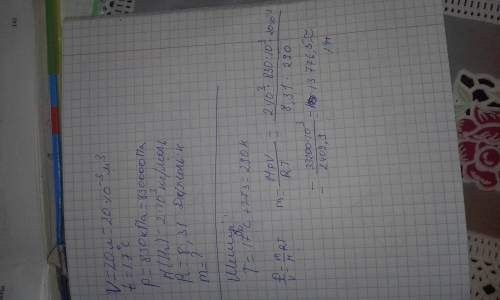 V=20л=20·10⁻³м³
t=17°C
P=830кПа=830000Па
M(H₂)=2·10⁻³кг/моль
R=8,31 Дж/моль·К
m=?
T=17°C+273=290К
P=m/V·RT/M
m=MPV/RT=2·10⁻³·830·10³·20·10⁻³/8,31·290
=33200·10⁻³/2409,9